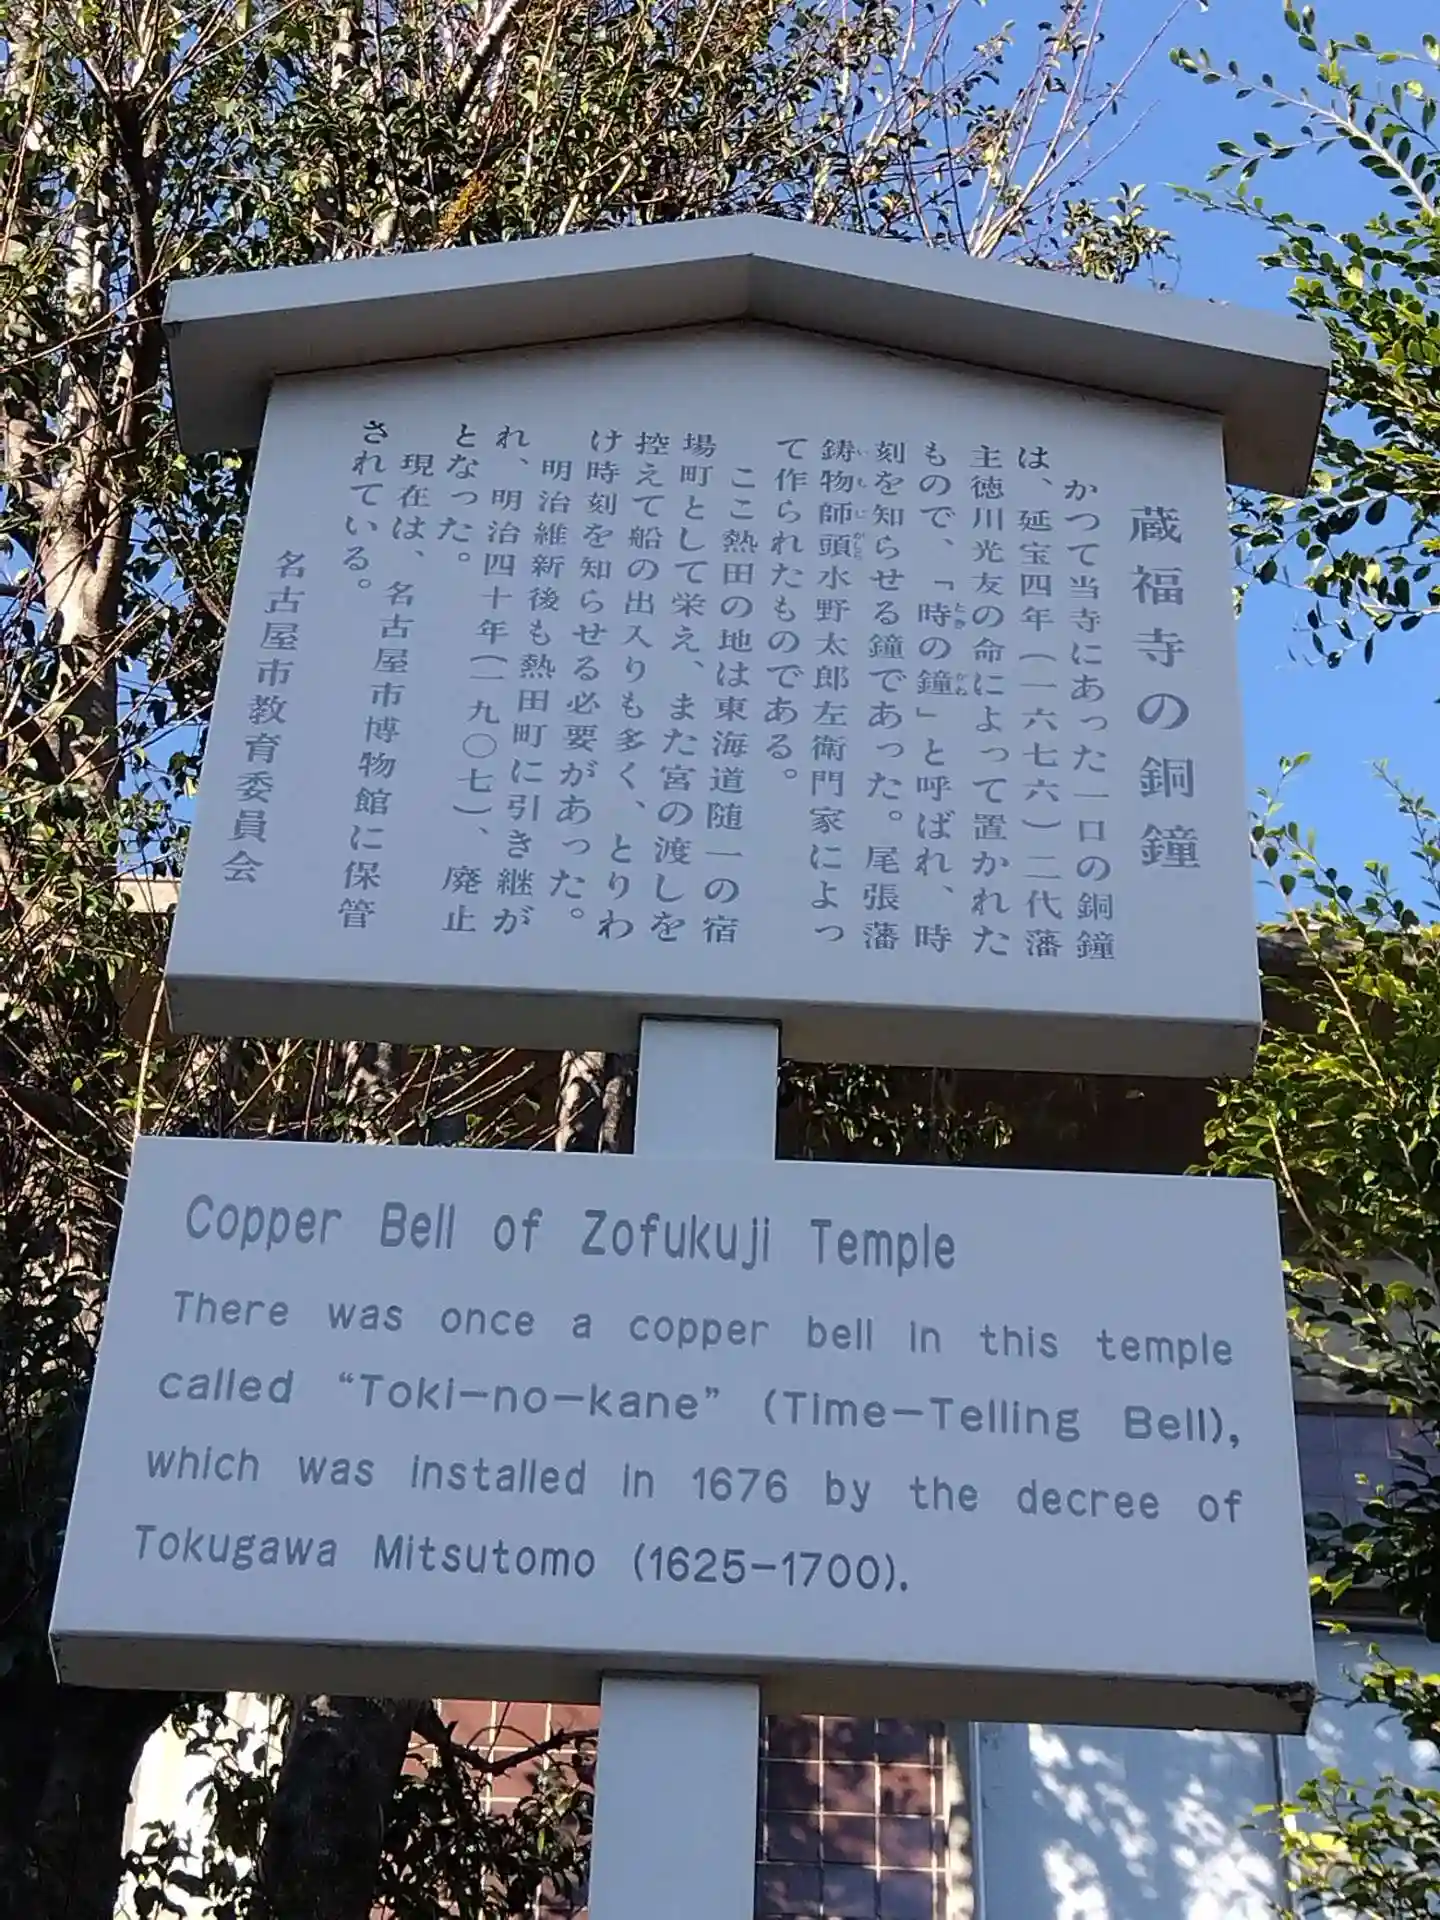 蔵福寺の銅鐘
かつて当寺にあった一口の銅鐘
は、延宝四年（一六七六）二代藩
主徳川光友の命によって置かれた
もので、「時の鐘」と呼ばれ、時
とき かね
刻を知らせる鐘であった。尾張藩
鋳物師頭水野太郎左衛門家によっ
いもじがしら
て作られたものである。
ここ熱田の地は東海道随一の宿
場町として栄え、また宮の渡しを
控えて船の出入りも多く、とりわ
け時刻を知らせる必要があった。
明治維新後も熱田町に引き継が
れ、明治四十年（一九〇七）、廃止
となった。
現在は、名古屋市博物館に保管
されている。
名古屋市教育委員会
Copper Bell of Zofukuji Temple
There was once a copper bell in this temple
called “Toki-no-kane” (Time-Telling Bell),
which was installed in 1676 by the decree of
Tokugawa Mitsutomo (1625-1700).